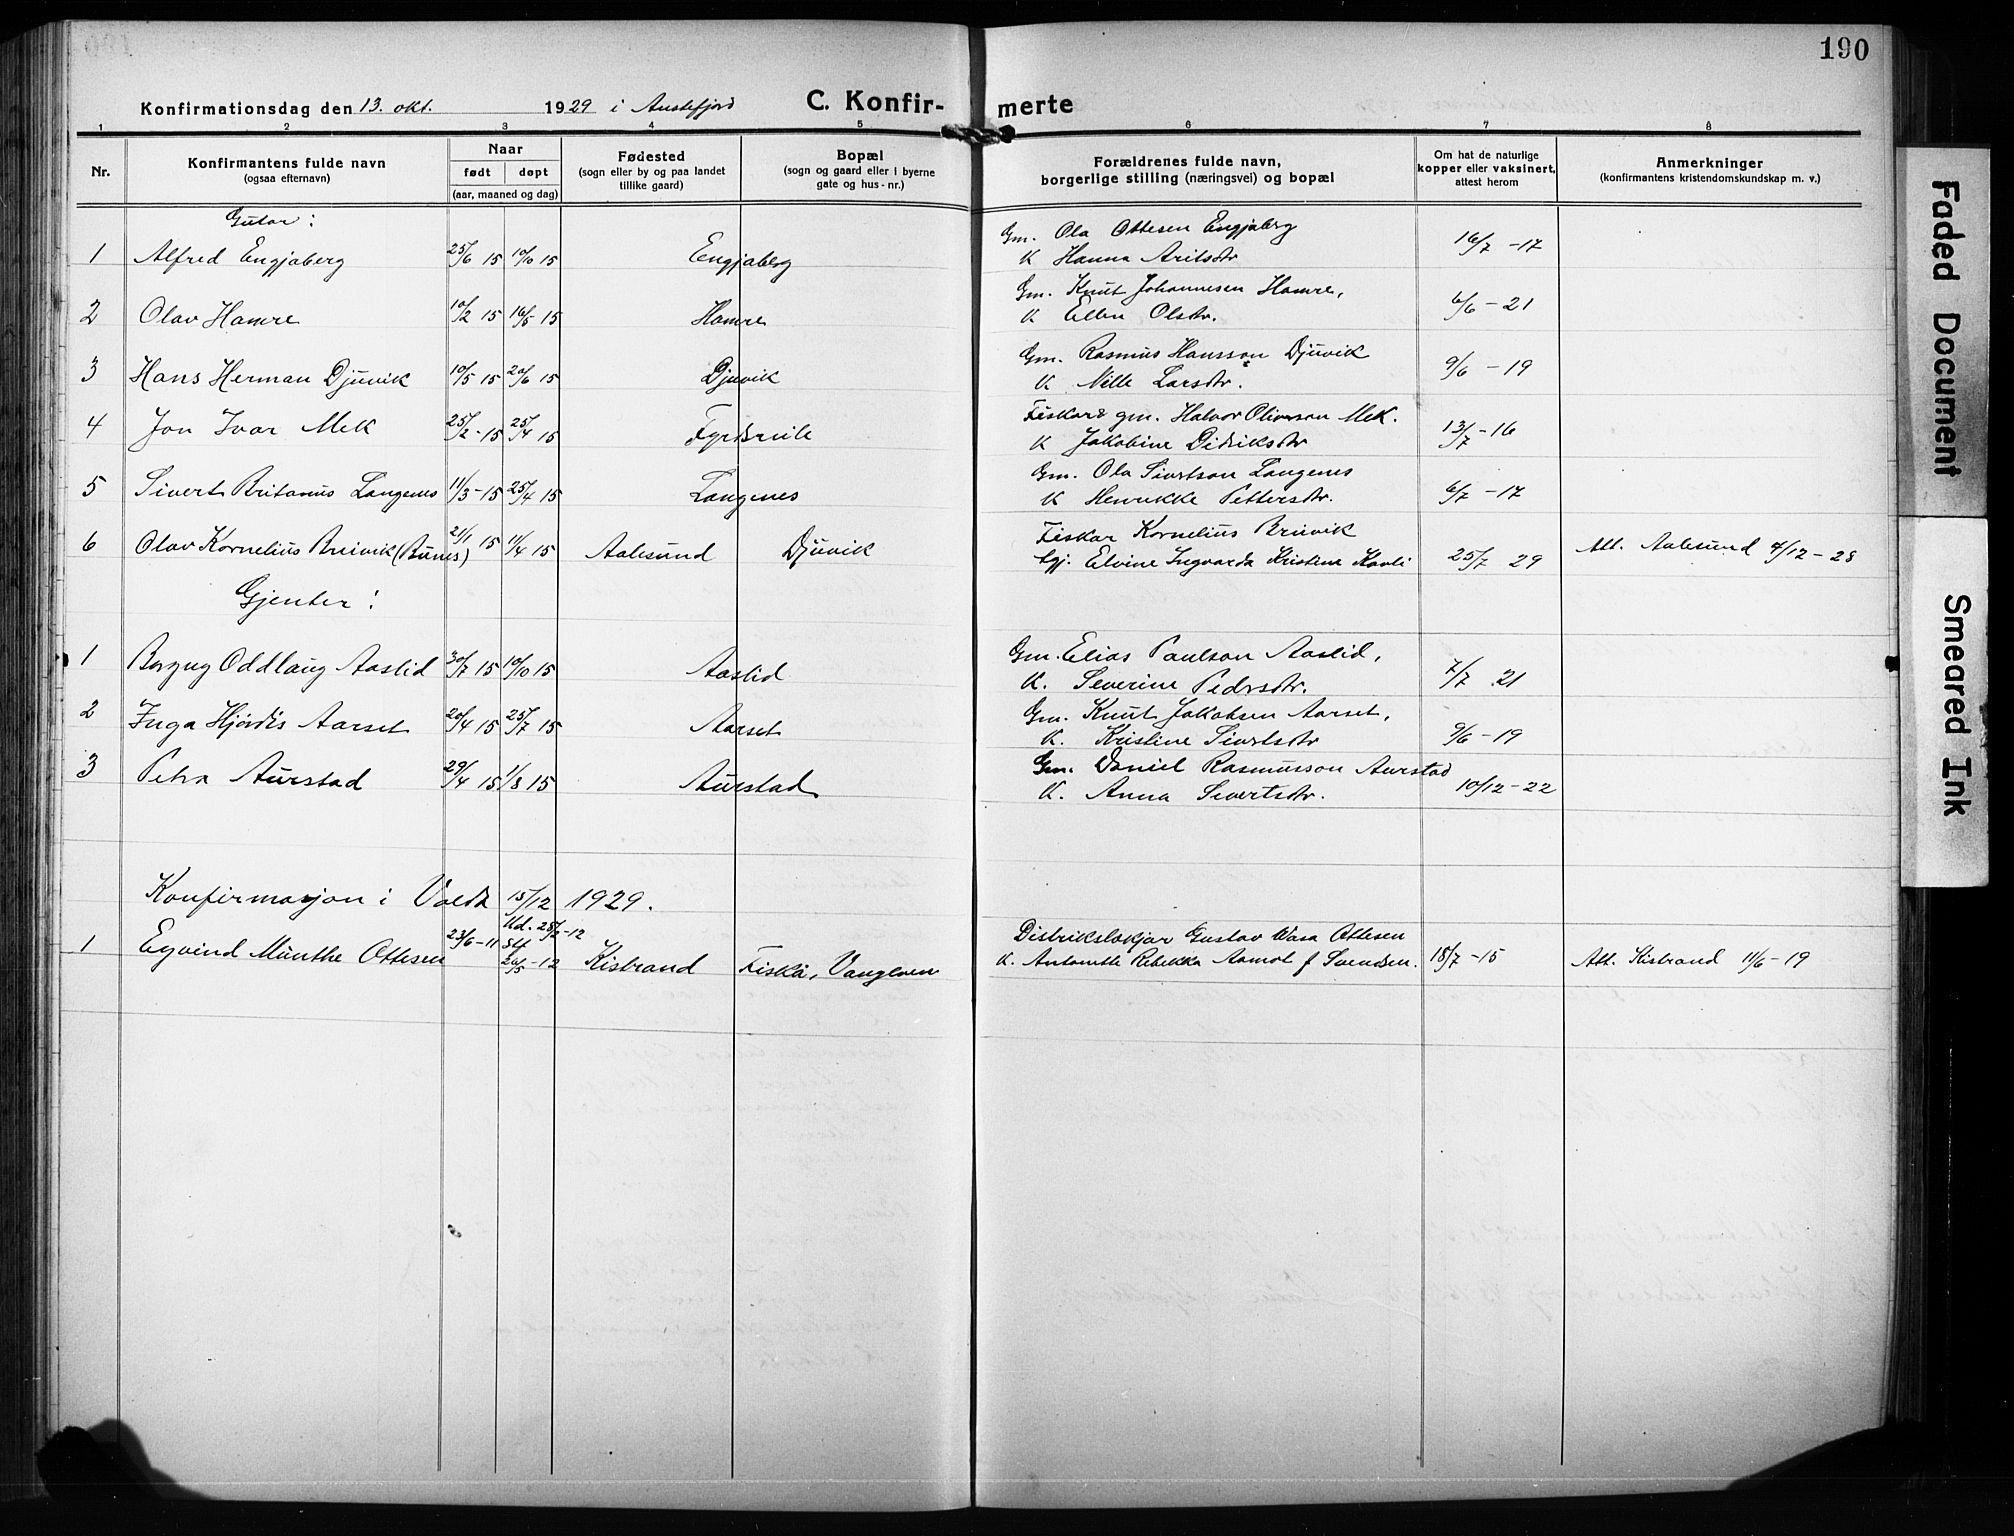 190
Konfirmationsdag den 13. okt. 1929 i Austefjord C. Konfirmerte
1 2 3 4 5 6 7 8
Nr.
Konfirmantens fulde navn
(ogsaa efternavn)
Naar
født døpt
(aar, maaned og dag)
Fødested
(sogn eller by og paa landet
tillike gaard)
Bopæl
(sogn og gaard eller i byerne
gate og hus-nr.)
Forældrenes fulde navn,
borgerlige stilling (næringsvei) og bopæl
Om hat de naturlige
kopper eller vaksinert,
attest herom
Anmerkninger
(konfirmantens kristendomskundskap m. v.)
Gutar:
1 Alfred Engjaberg 25/6 15 10/10 15 Engjaberg Gm. Ola Ottesen Engjaberg 16/7 -17
K Hanna
2 Olav Hamre 10/2 15 16/5 15 Hamre Gm. Knut Johannesen Hamre, 6/6 - 21
K Ellen Olsdtr.
3 Hans Herman Djuvik 10/5 15 20/6 15 Djuvik Gm. Rasmus Hansson Djuvik 9/6 - 19
K Nille Larsdtr.
4 Jon Ivar Mek 25/2 - 15 25/4 15 Fiskar & gm. Halvor Oliverson Mek. 13/7 - 16
K Jakobine Didriksdtr
5 Sivert Britanus Langenes 11/3 - 15 25/4 15 Langenes Gm. Ola Sivertson Langenes 6/7 - 17
K Henrikke Pettersdtr.
6 Olav Kornelius Breivik (Bunes) 21/1 15 11/4 15 Aalesund Djuvik Fiskar Kornelius Breivik
Elvine Ingvarda Kristina Kavli 25/7 29 Att. Aalesund 4/12 - 28
Gjenter:
1 Borgny Oddlaug Aaslid 30/7 15 10/10 15 Aaslid Gm. Elias Paulson Aaslid, 7/7 21
K. Severine Pedrsdtr.
2 Inga Hjørdis Aarset 20/4 15 25/7 15 Aarset Gm. Knut Jakobsen Aarset, 9/6 - 19
K. Kristine Sivertsdtr
3 Petra Aurstad 29/4 15 1/8 15 Aurstad Gm. Daniel Rasmusson Aurstad 10/12 - 22
K. Anna Sivertsdtr.
Konfirmasjon i Volda 15/12 1929.
1 Eyvind Munthe Ottesen 23/6 - 11 Ud. 25/2 - 12 St. 26/5 - 12 Kistrand Fiskå, Vanylven Distrikslækjar Gustav Wasa Ottesen
K. Antonette Rebekka Aamot f Svendsen. 18/7 - 15 Att. Kistrand 11/6 - 19
Faded Document
Smeared Ink